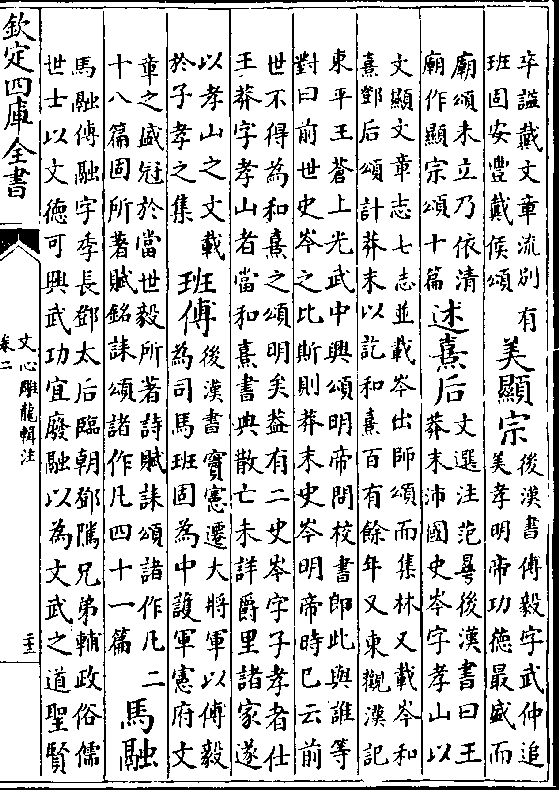 卒謚戴文章流别有
班固安豐戴侯頌
美顯宗
後漢書傅毅字武仲追
美孝明帝功德最盛而
廟頌未立乃依清
廟作顯宗頌十篇
述熹后
文選注范曅後漢書曰王
莽末沛國史岑字孝山以
文顯文章志七志並載岑出師頌而集林又載岑和
熹鄧后頌計莽末以訖和熹百有餘年又東觀漢記
東平王蒼上光武中興頌明帝問校書郎此與誰等
對曰前世史岑之比斯則莽末史岑明帝時已云前
世不得為和熹之頌明矣葢有二史岑字子孝者仕
王莽字孝山者當和熹書典散亡未詳爵里諸家遂
以孝山之文載
於子孝之集
班傅
後漢書竇憲遷大將軍以傅毅
為司馬班固為中護軍憲府文
章之盛冠於當世毅所著詩賦誄頌諸作凡二
十八篇固所著賦銘誄頌諸作凡四十一篇
馬融
馬融傅融字季長鄧太后臨朝鄧隲兄弟輔政俗儒
世士以文德可興武功宜廢融以為文武之道聖賢
欽定四庫全書
文心雕龍輯注
卷二
二十三